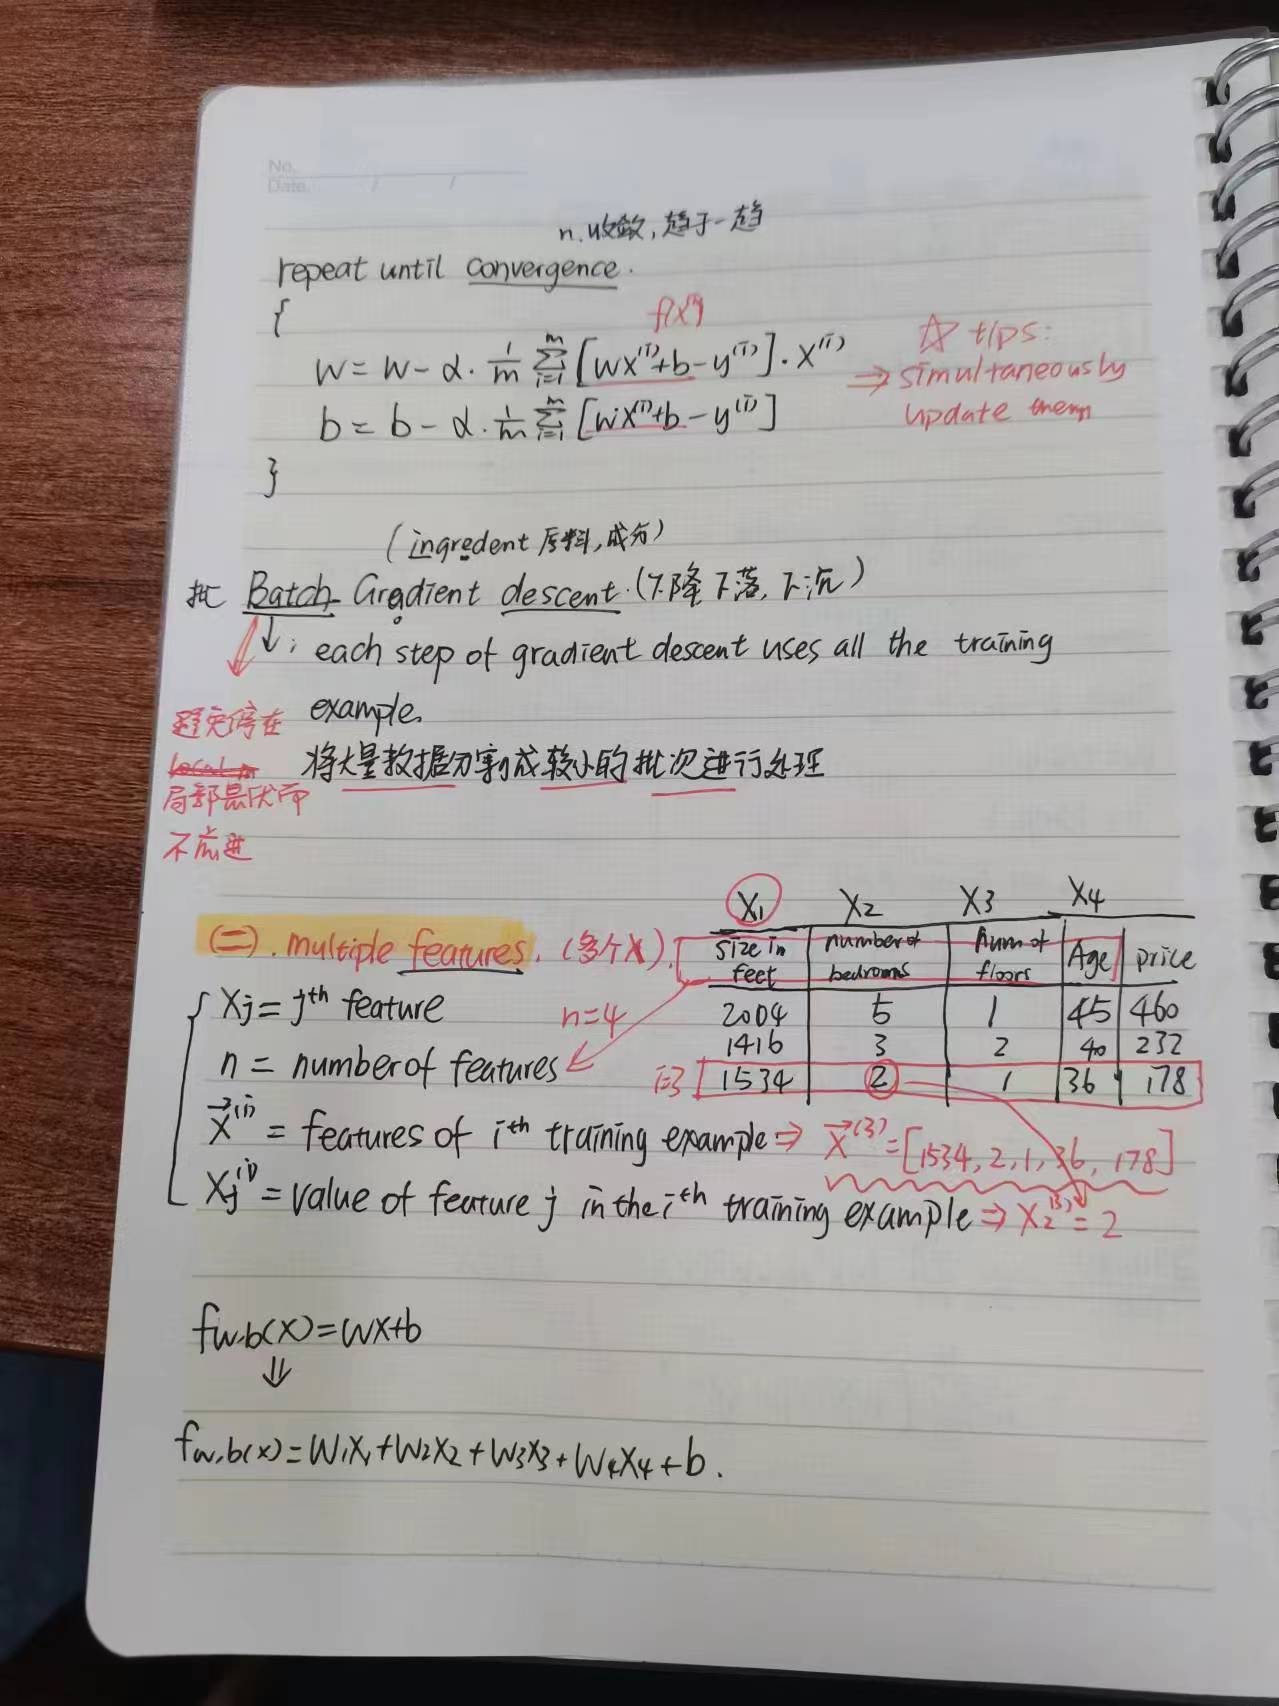 No.
Date. / /
n.收敛,趋于一趋
repeat until convergence.
{
f(x⁽ⁱ⁾)
w = w - α · 1/m ∑ᵢ₌₁ᵐ [wx⁽ⁱ⁾+b-y⁽ⁱ⁾] · x⁽ⁱ⁾
b = b - α · 1/m ∑ᵢ₌₁ᵐ [wx⁽ⁱ⁾+b-y⁽ⁱ⁾]
}
☆ tips:
⇒ simultaneously
update them
(ingredent 原料,成分)
批 Batch Gradient descent.(下降下落,下沉)
↓: each step of gradient descent uses all the training
example.
将大量数据分割成较小的批次进行处理
避免停在
local m
局部最优而
不前进
(二). multiple features. (多个X).
X₁ X₂ X₃ X₄
size in feet number of bedrooms num of floors Age price
2004 5 1 45 460
1416 3 2 40 232
i=3 1534 2 1 36 178
Xj = jᵗʰ feature
n=4
n = number of features
X⃗⁽ⁱ⁾ = features of iᵗʰ training example ⇒ X⃗⁽³⁾=[1534,2,1,36,178]
Xj⁽ⁱ⁾ = value of feature j in the iᵗʰ training example ⇒ X₂⁽³⁾=2
fw,b(x)=wx+b
⇓
fw,b(x)=W₁X₁+W₂X₂+W₃X₃+W₄X₄+b.